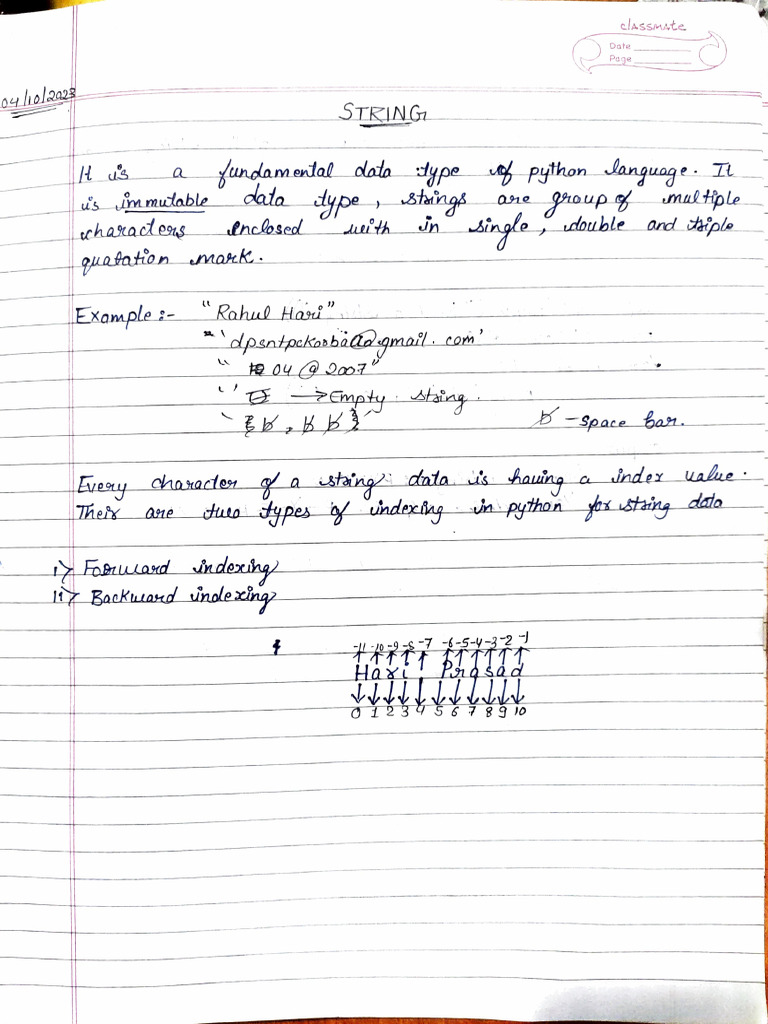 classmate
Date
Page
04/10/2023
STRING
It is a fundamental data type of python language. It
is immutable data type, strings are group of multiple
characters enclosed with in single, double and triple
quatation mark.
Example :- "Rahul Hari"
'dpsntpckorba@gmail.com'
"04@2007"
' ' → Empty string.
{b, b b} b - space bar.
Every character of a string data is having a index value.
Their are two types of indexing in python for string data
i> Forward indexing
ii> Backward indexing
-11 -10 -9 -8 -7 -6 -5 -4 -3 -2 -1
Hari Prasad
0 1 2 3 4 5 6 7 8 9 10